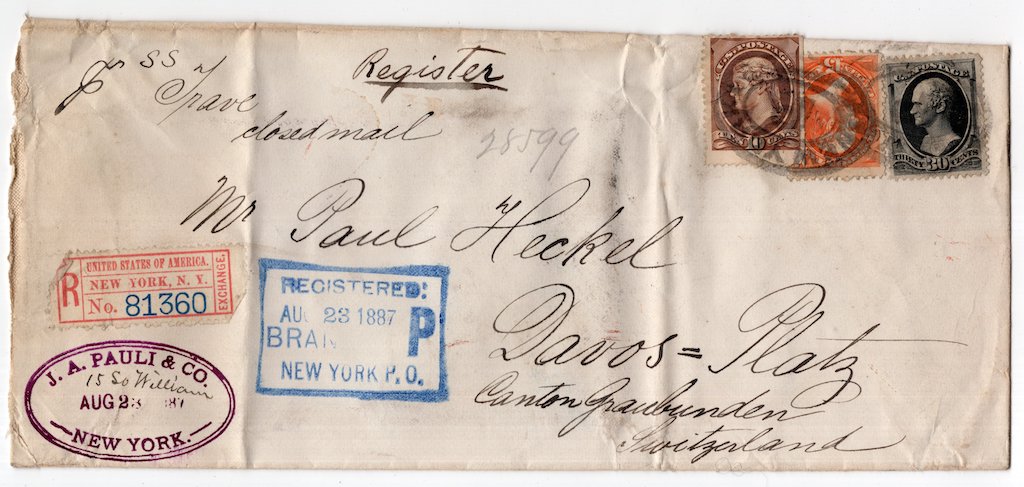 Register
SS Trave
closed mail
28599
U.S. POSTAGE
10 CENTS
U.S. POSTAGE
THIRTY 30 CENTS
Mr Paul Heckel
Davos=Platz
Canton Graubunden
Switzerland
R
UNITED STATES OF AMERICA.
NEW YORK, N. Y.
No. 81360
EXCHANGE.
REGISTERED:
AUG 23 1887
BRAN P
NEW YORK P.O.
J. A. PAULI & CO.
15 So William
AUG 23 '87
NEW YORK.